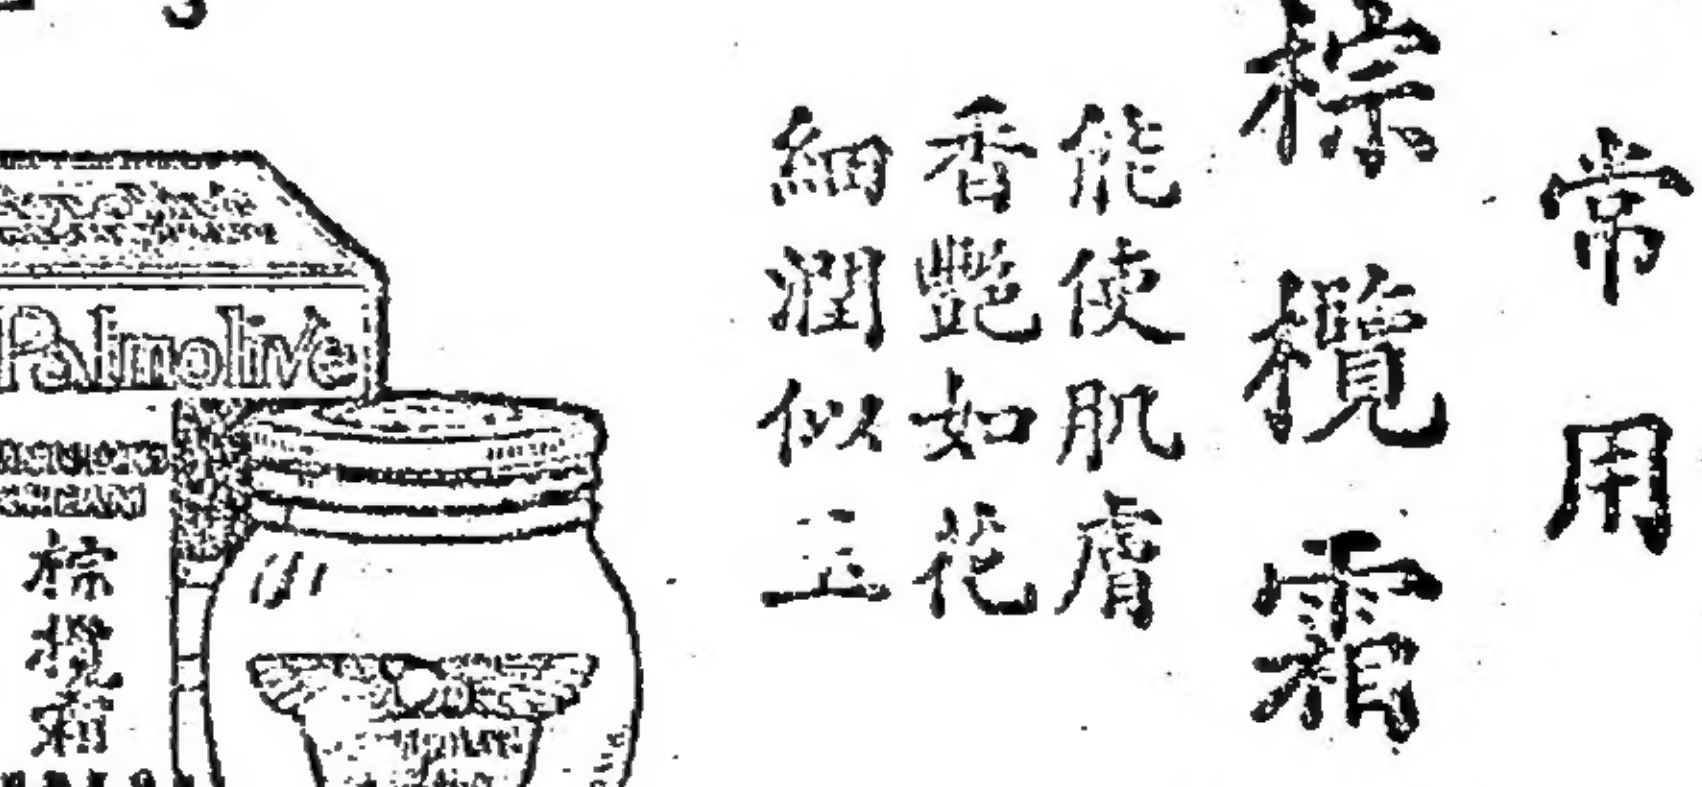 常用
棕欖霜
能使肌膚
香艷如花
細潤似玉
Palmolive
棕欖霜